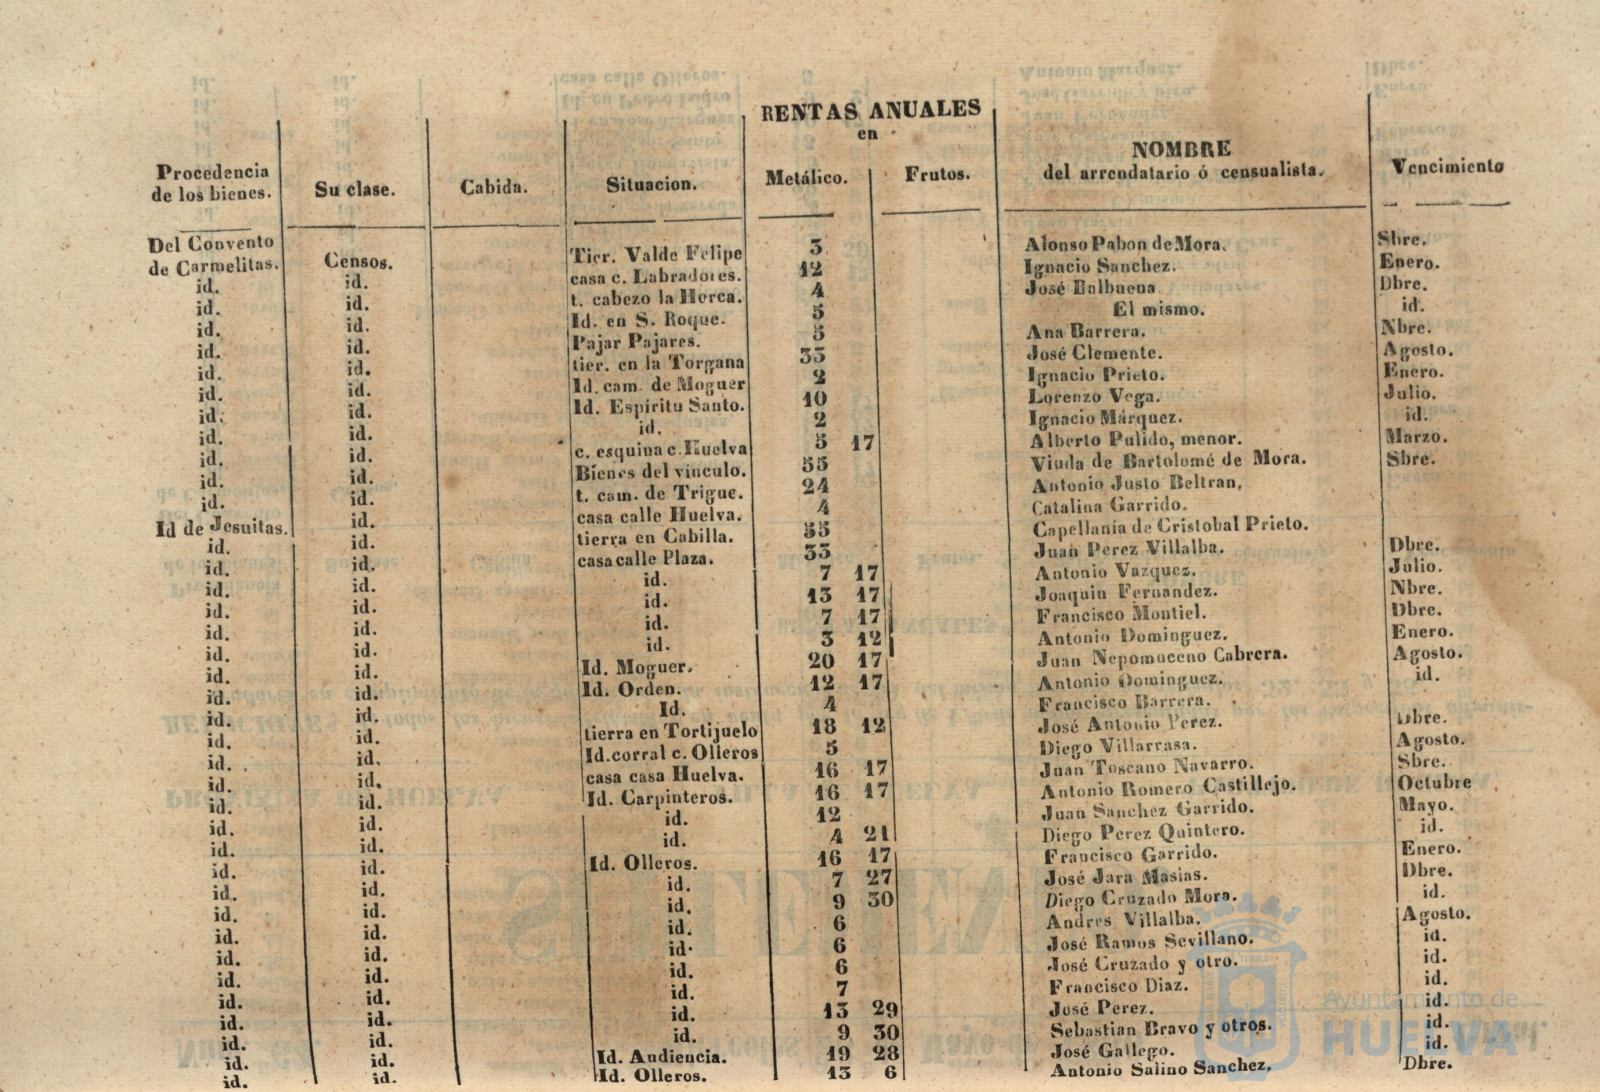 RENTAS ANUALES
en
Procedencia de los bienes. Su clase. Cabida. Situacion. Metálico. Frutos. NOMBRE del arrendatario ó censualista. Vencimiento
Del Convento
de Carmelitas. Censos. Tier. Valde Felipe 3 Alonso Pabon de Mora. Sbre.
id. id. casa c. Labradores. 12 Ignacio Sanchez. Enero.
id. id. t. cabezo la Horca. 4 José Balbuena Dbre.
id. id. Id. en S. Roque. 5 El mismo. id.
id. id. Pajar Pajares. 5 Ana Barrera. Nbre.
id. id. tier. en la Torgana 33 José Clemente. Agosto.
id. id. Id. cam. de Moguer 2 Ignacio Prieto. Enero.
id. id. Id. Espíritu Santo. 10 Lorenzo Vega. Julio.
id. id. id. 2 Ignacio Márquez. id.
id. id. c. esquina c. Huelva 5 17 Alberto Pulido, menor. Marzo.
id. id. Bienes del vinculo. 55 Viuda de Bartolomé de Mora. Sbre.
id. id. t. cam. de Trigue. 24 Antonio Justo Beltran,
Id de Jesuitas. id. casa calle Huelva. 4 Catalina Garrido.
id. id. tierra en Cabilla. 55 Capellanía de Cristobal Prieto.
id. id. casa calle Plaza. 33 Juan Perez Villalba. Dbre.
id. id. id. 7 17 Antonio Vazquez. Julio.
id. id. id. 13 17 Joaquin Fernandez. Nbre.
id. id. id. 7 17 Francisco Montiel. Dbre.
id. id. id. 3 12 Antonio Dominguez. Enero.
id. id. Id. Moguer. 20 17 Juan Nepomuceno Cabrera. Agosto.
id. id. Id. Orden. 12 17 Antonio Dominguez. id.
id. id. Id. 4 Francisco Barrera.
id. id. tierra en Tortijuelo 18 12 José Antonio Perez. Dbre.
id. id. Id. corral c. Olleros 5 Diego Villarrasa. Agosto.
id. id. casa casa Huelva. 16 17 Juan Toscano Navarro. Sbre.
id. id. Id. Carpinteros. 16 17 Antonio Romero Castillejo. Octubre
id. id. id. 12 Juan Sanchez Garrido. Mayo.
id. id. id. 4 21 Diego Perez Quintero. id.
id. id. Id. Olleros. 16 17 Francisco Garrido. Enero.
id. id. id. 7 27 José Jara Masias. Dbre.
id. id. id. 9 30 Diego Cruzado Mora. id.
id. id. id. 6 Andres Villalba. Agosto.
id. id. id. 6 José Ramos Sevillano. id.
id. id. id. 6 José Cruzado y otro. id.
id. id. id. 7 Francisco Diaz. id.
id. id. id. 13 29 José Perez. id.
id. id. id. 9 30 Sebastian Bravo y otros. id.
id. id. Id. Audiencia. 19 28 José Gallego. id.
id. id. Id. Olleros. 13 6 Antonio Salino Sanchez. Dbre.
Ayuntamiento de
HUELVA